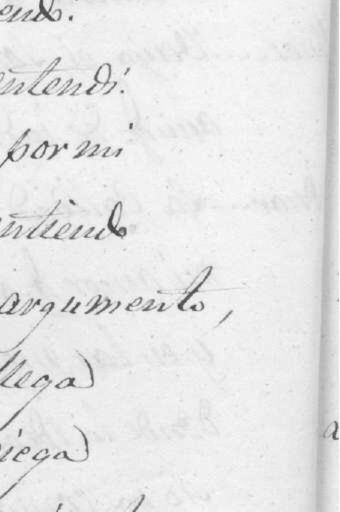 endo.
entendí.
por mi
entiendo
argumento,
llega
iega